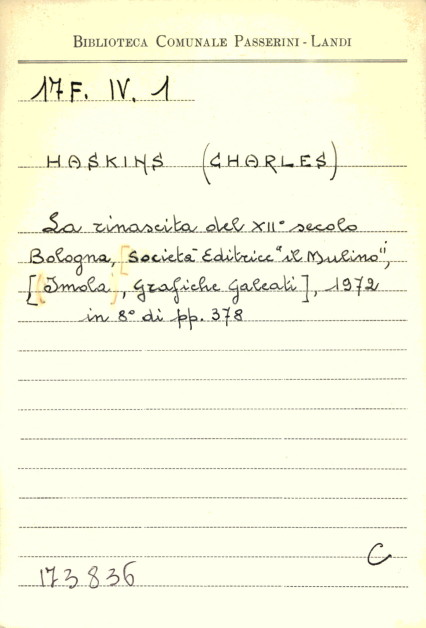 BIBLIOTECA COMUNALE PASSERINI - LANDI
17 F. IV. 1
HASKINS (CHARLES)
La rinascita del XII° secolo
Bologna, [Società Editrice "il Mulino",
[(Imola), Grafiche Galeati], 1972
in 8° di pp. 378
C
173836